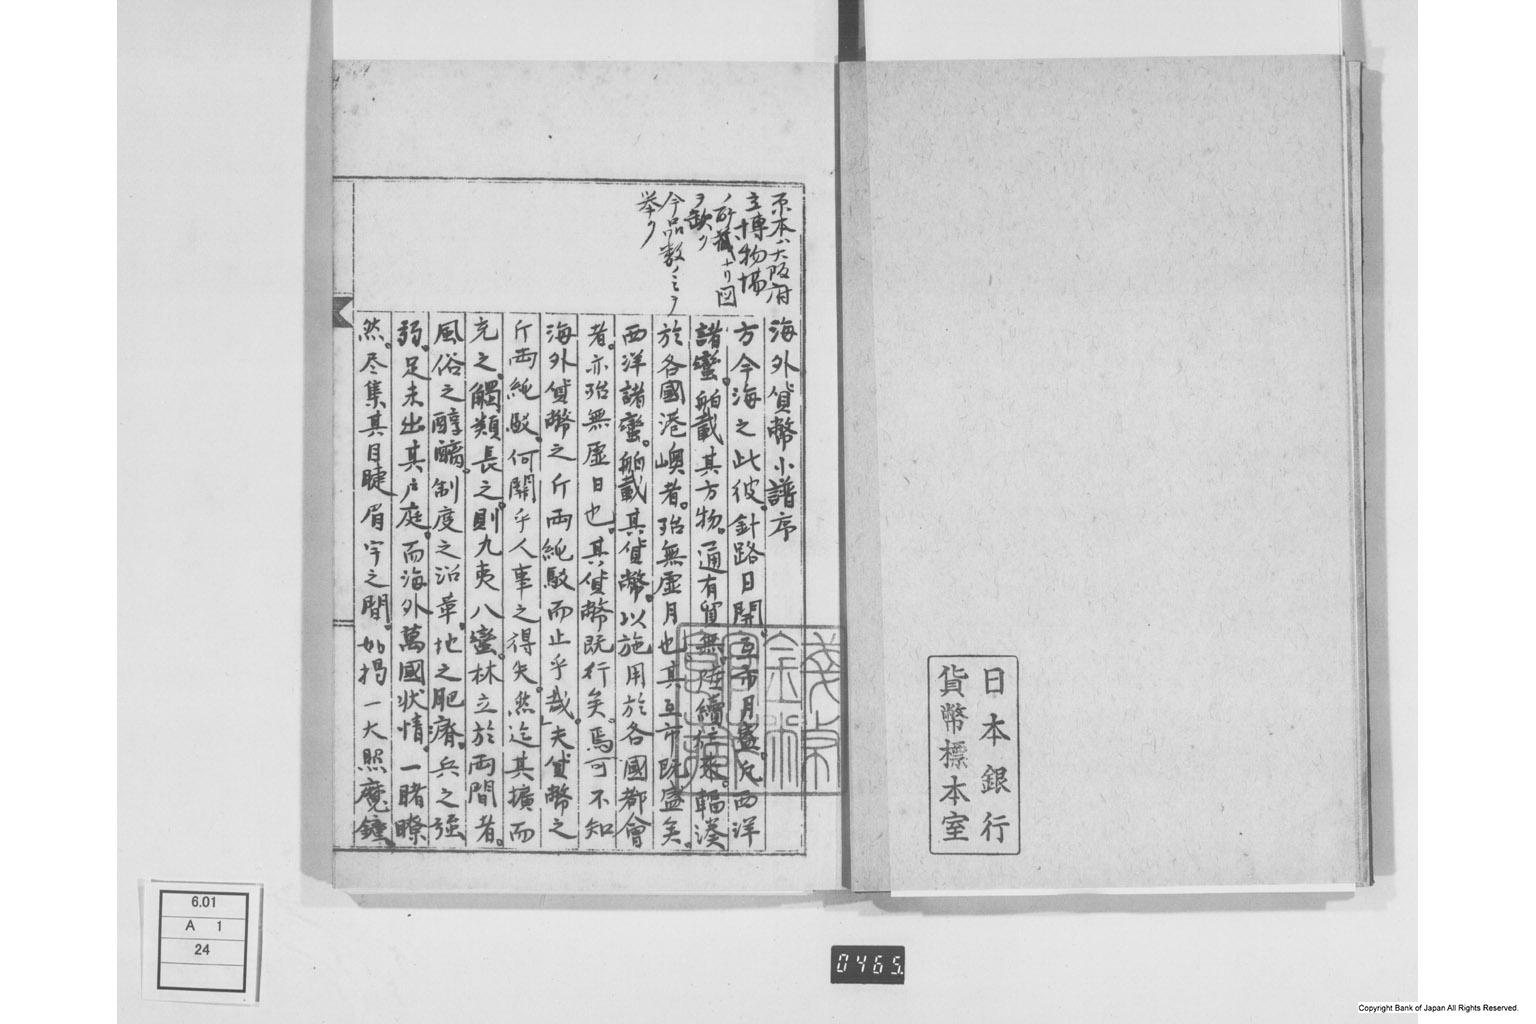 日本銀行
貨幣標本室
原本ハ大阪府
立博物場
ノ所蔵ナリ図
ヲ欠ク
今品数ノミヲ
挙ク
海外貨幣小譜序
方今海之此彼。針路日開。互市月盛。凡西洋
諸蠻。舶載其方物。通有貿無。陸續往来。輻湊
於各國港嶼者。殆無虚月也。其互市既盛矣。
西洋諸蠻。舶載其貨幣。以施用於各國都會
者。亦殆無虚日也。其貨幣既行矣。焉可不知
海外貨幣之斤両純駁而止乎哉。夫貨幣之
斤両純駁。何關乎人事之得失。然迄其擴而
充之。觸類長之。則九夷八蠻。林立於両間者。
風俗之醇醨。制度之沿革。地之肥瘠。兵之强
弱。足未出其戸庭。而海外萬國状情。一睹瞭
然。尽集其目睫眉宇之間。如掲一大照魔鏡。
6.01
A 1
24
0465.
Copyright Bank of Japan All Rights Reserved.